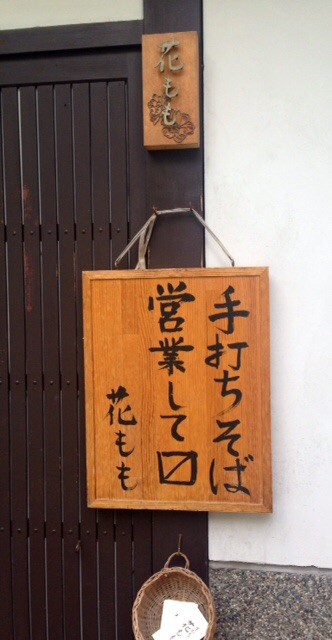 花もも
手打ちそば
営業して〼
花もも